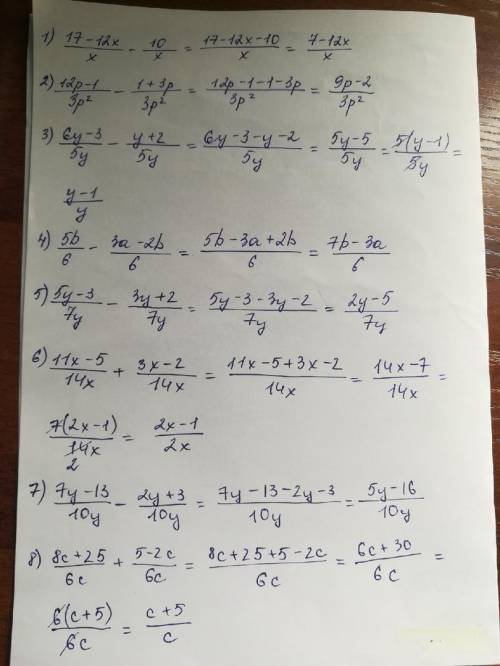 1) (17-12x)/x - 10/x = (17-12x-10)/x = (7-12x)/x
2) (12p-1)/3p² - (1+3p)/3p² = (12p-1-1-3p)/3p² = (9p-2)/3p²
3) (6y-3)/5y - (y+2)/5y = (6y-3-y-2)/5y = (5y-5)/5y = 5(y-1)/5y =
(y-1)/y
4) 5b/6 - (3a-2b)/6 = (5b-3a+2b)/6 = (7b-3a)/6
5) (5y-3)/7y - (3y+2)/7y = (5y-3-3y-2)/7y = (2y-5)/7y
6) (11x-5)/14x + (3x-2)/14x = (11x-5+3x-2)/14x = (14x-7)/14x =
7(2x-1)/14x = (2x-1)/2x
2
7) (7y-13)/10y - (2y+3)/10y = (7y-13-2y-3)/10y = (5y-16)/10y
8) (8c+25)/6c + (5-2c)/6c = (8c+25+5-2c)/6c = (6c+30)/6c =
6(c+5)/6c = (c+5)/c